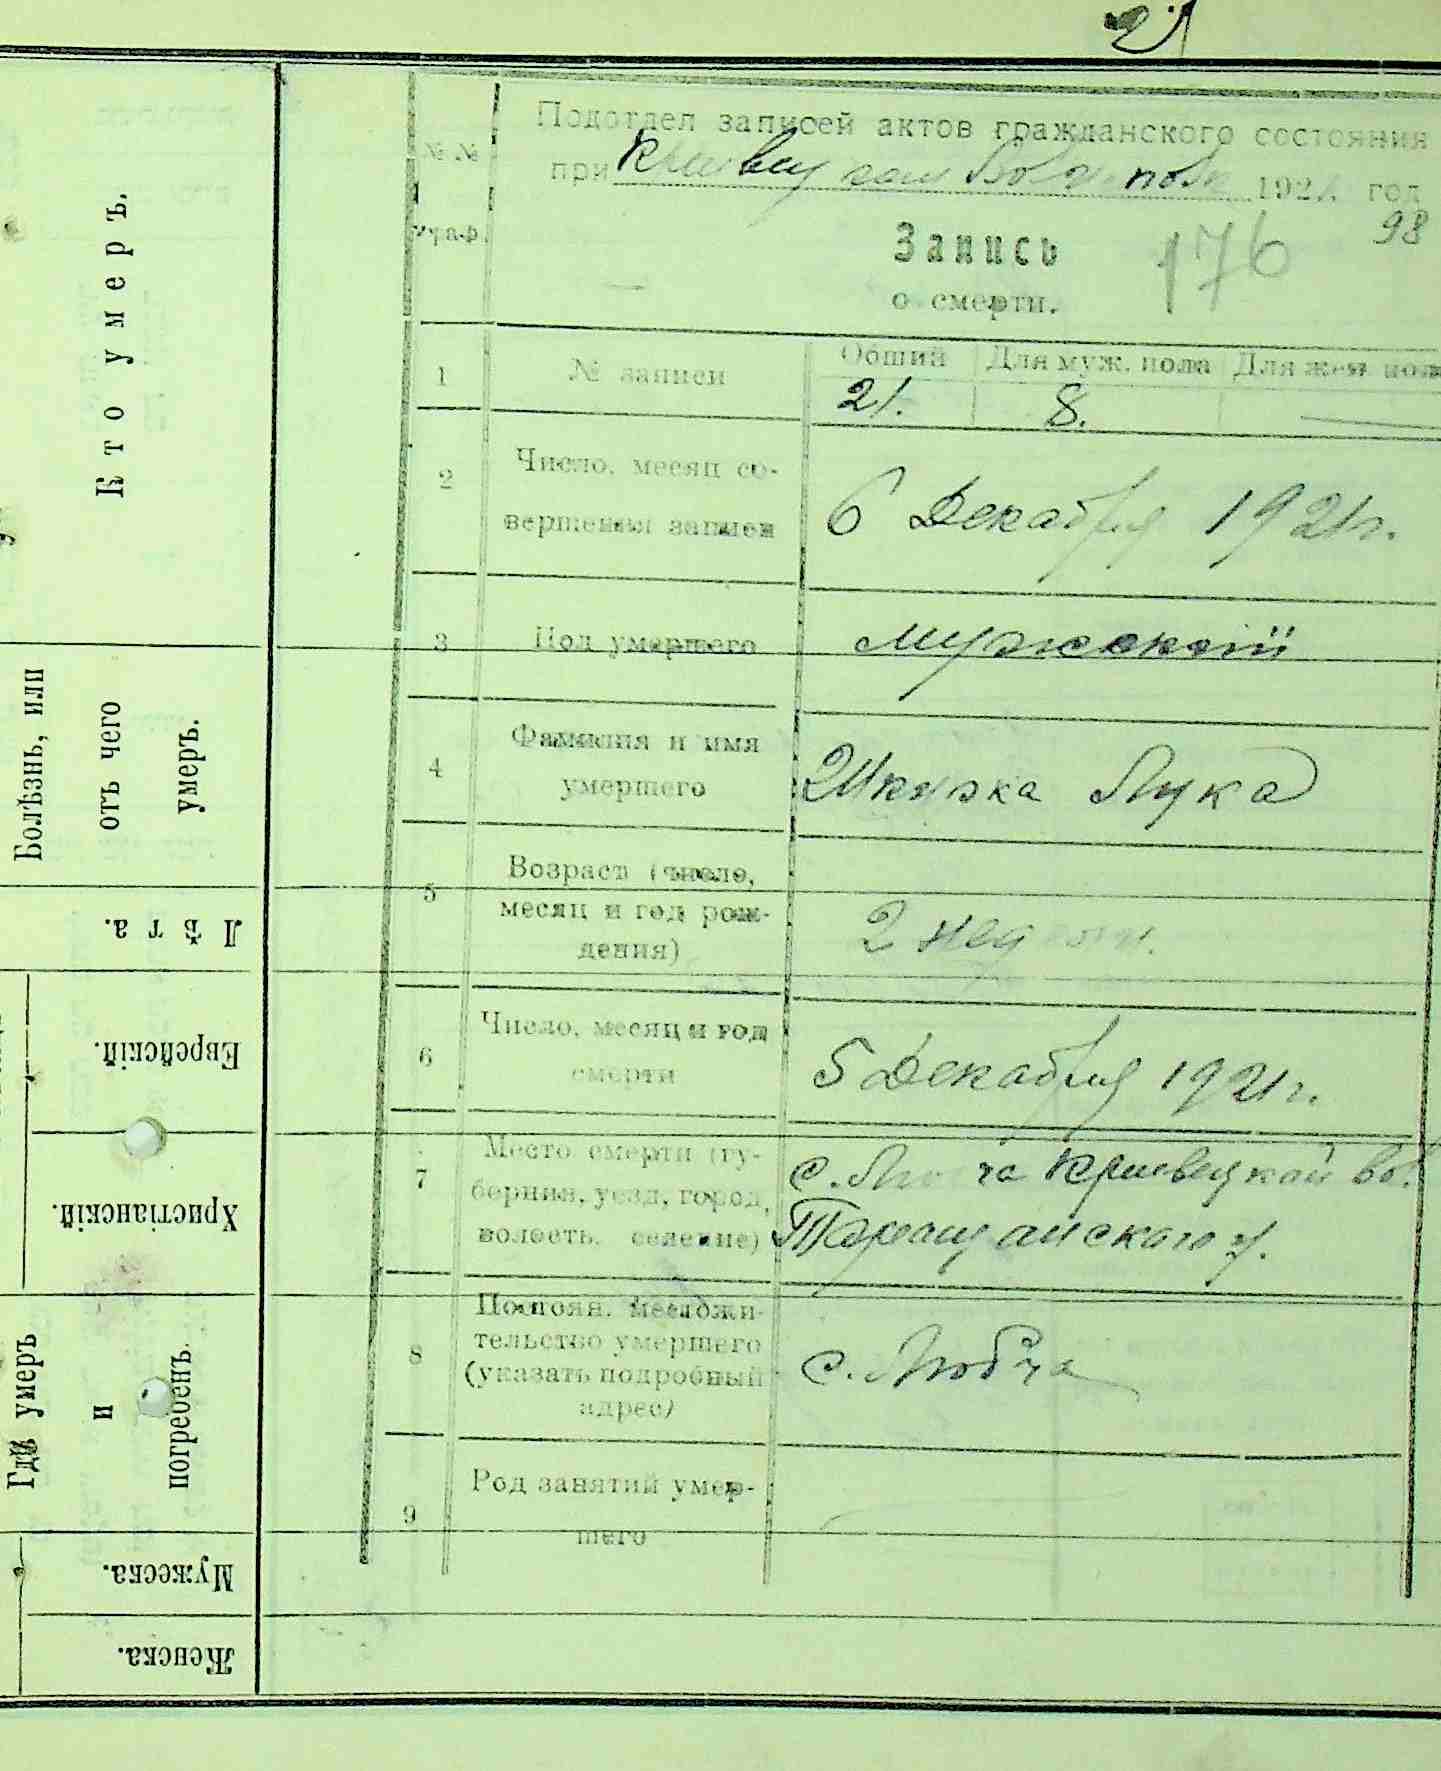 21
Подотдел записей актов гражданского состояния
при 192 год
98
Запись
176
о смерти.
№ №
граф.
1
№ записи
Общий
Для муж. пола
Для жен пола
21.
8.
2
Число, месяц со-
вершения записи
6 Декабря 1921г.
3
Пол умершего
мужский
4
Фамилия и имя
умершего
Шкузка Лука
5
Возраст (число,
месяц и год рож-
дения)
2 недели.
6
Число, месяц и год
смерти
5 Декабря 1921г.
7
Место смерти (гу-
берния, уезд, город,
волость, селение)
с. Любча Кривецкой вол.
Таращанского у.
8
Постоян. местожи-
тельство умершего
(указать подробный
адрес)
с. Любча
9
Род занятий умер-
шего
Кто умеръ.
Болѣзнь, или
отъ чего
умеръ.
Лѣта.
Еврейскій.
Христіанскій.
Гдѣ умеръ
и
погребенъ.
Мужеска.
Женска.